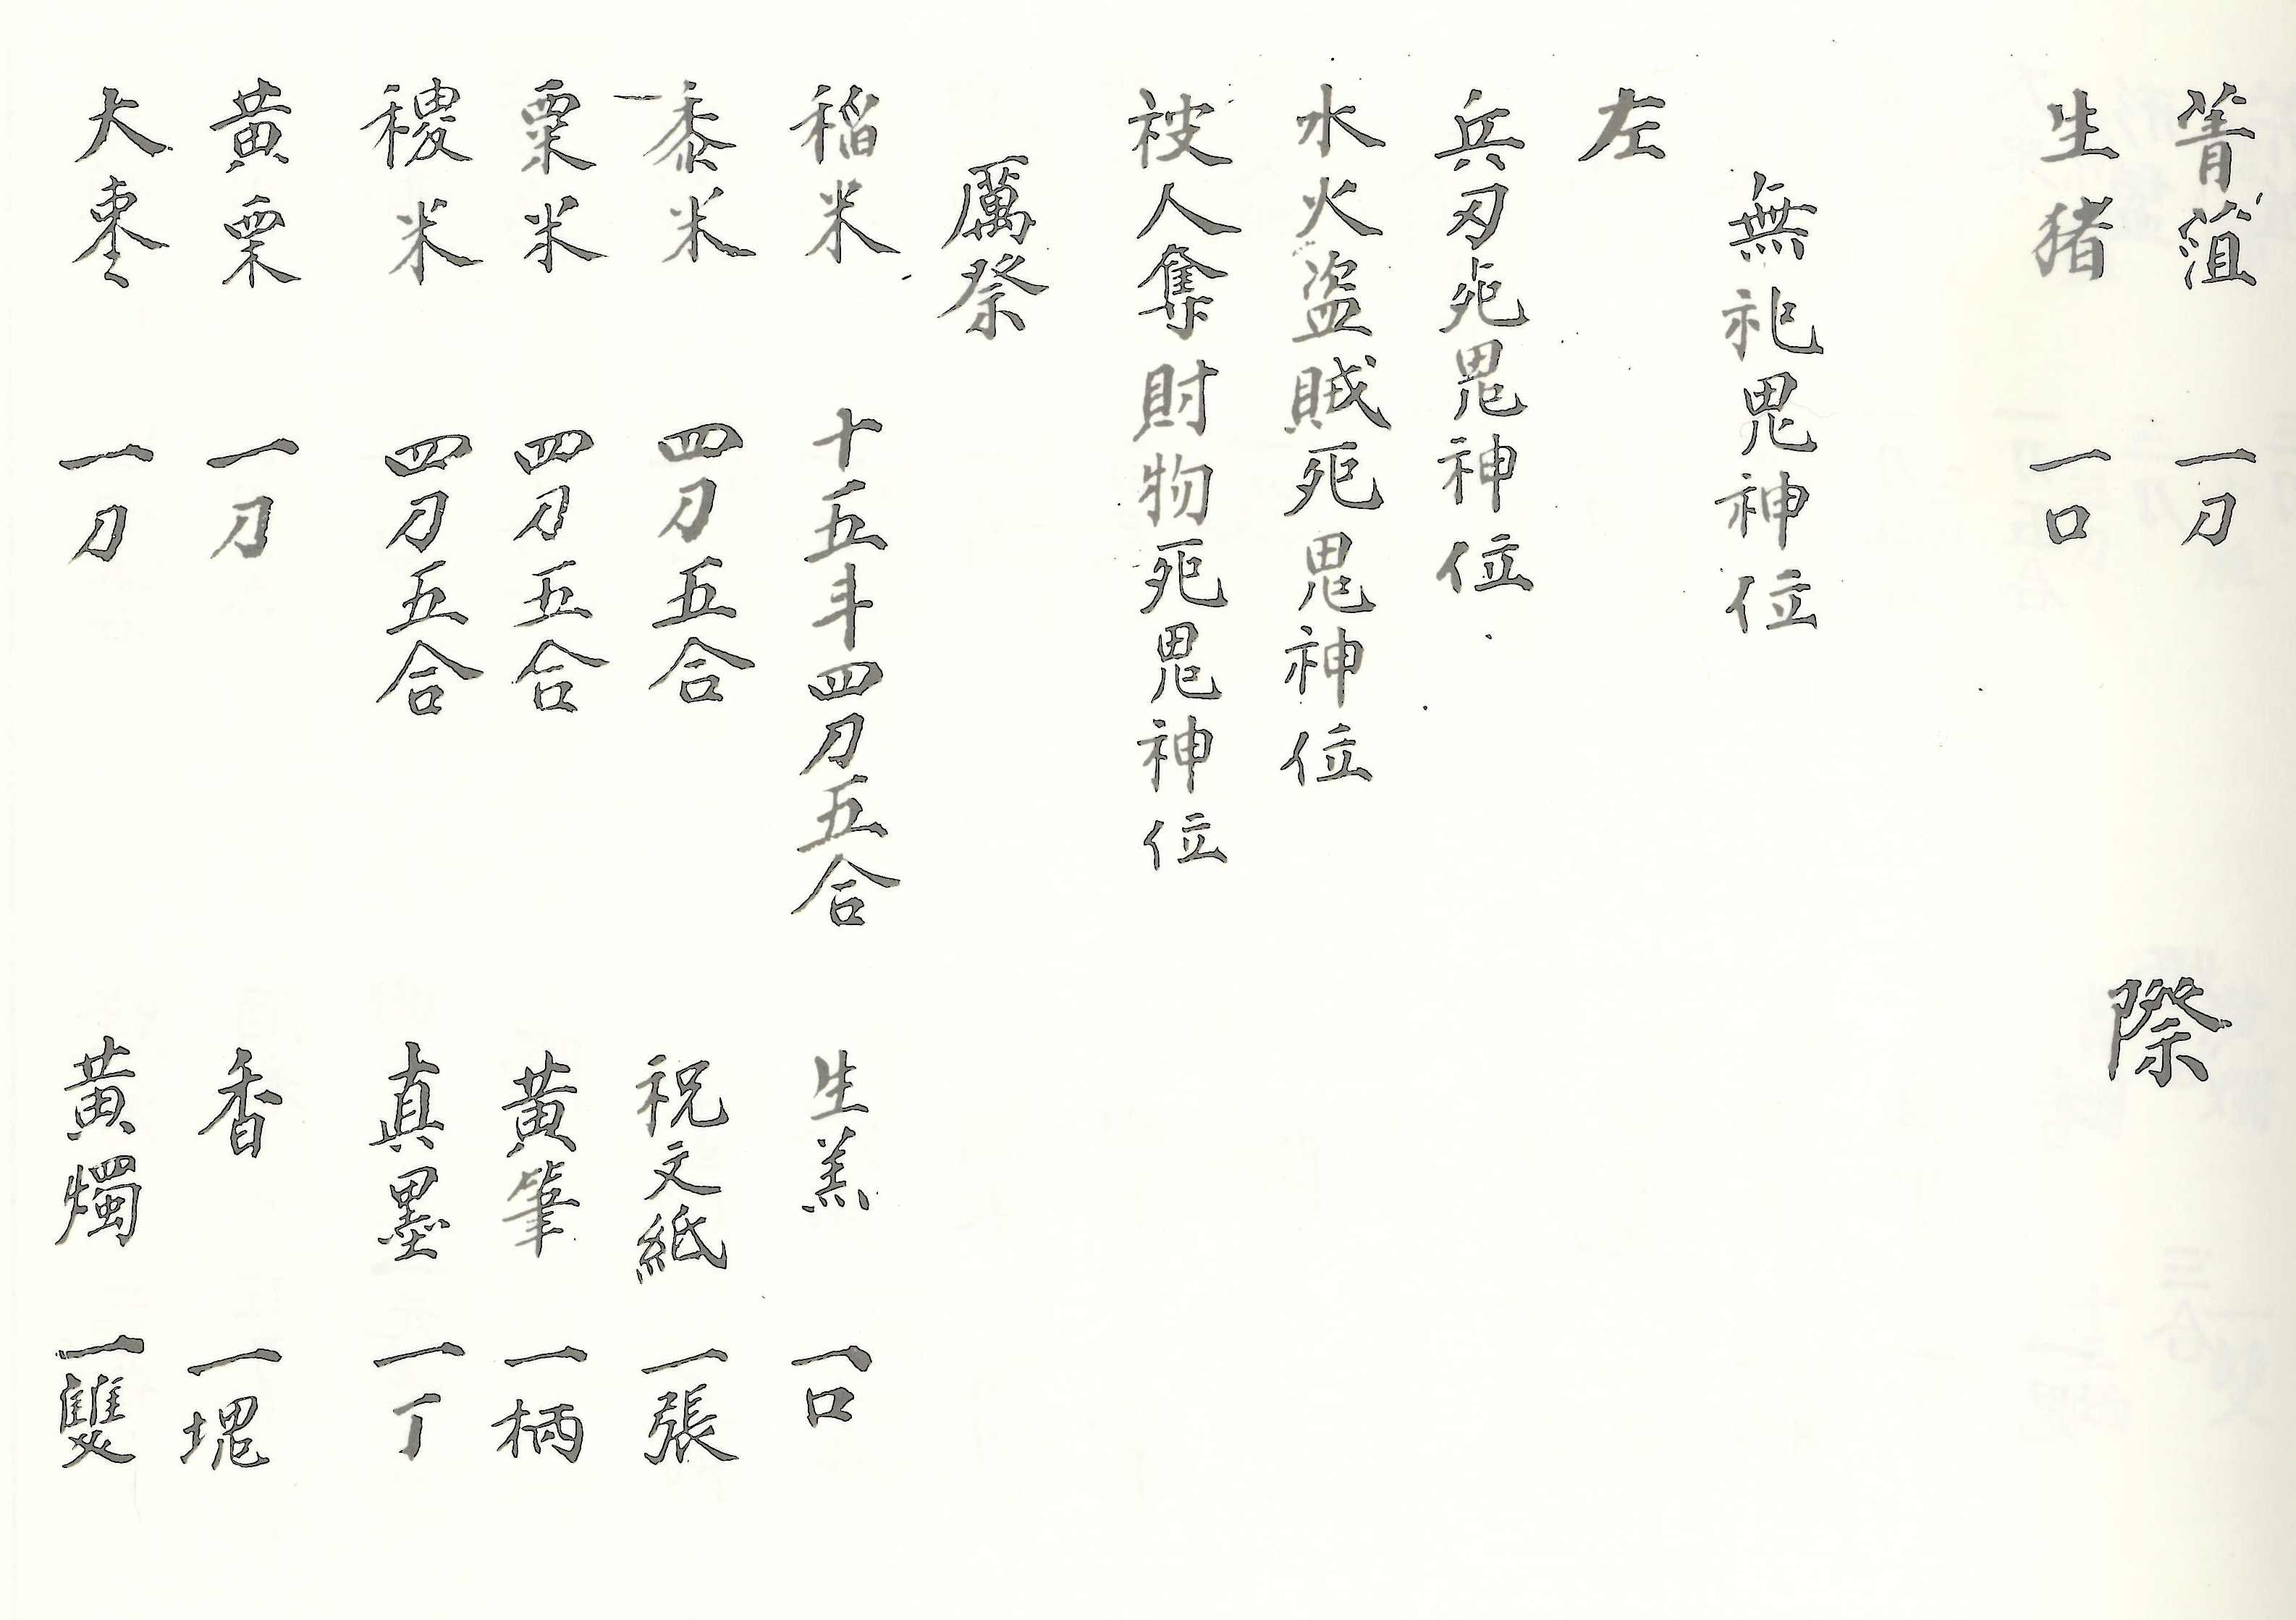 菁菹 一刀
生猪 一口
際
無祀鬼神位
左
兵刃死鬼神位
水火盗賊死鬼神位
被人奪財物死鬼神位
厲祭
稲米 十五斗四刀五合 生羔 一口
黍米 四刀五合 祝文紙 一張
粟米 四刀五合 黄筆 一柄
稷米 四刀五合 真墨 一丁
黄栗 一刀 香 一塊
大棗 一刀 黄燭 一雙